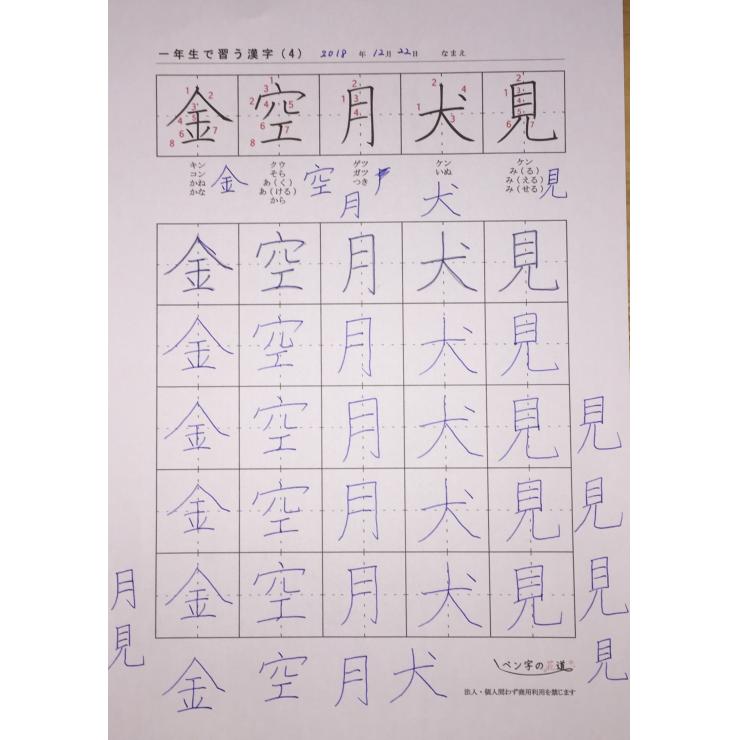 一年生で習う漢字(4) 2018年 12月 22日 なまえ
金 空 月 犬 見
キン コン かね かな
クウ そら あ(く) あ(ける) から
ゲツ ガツ つき
ケン いぬ
ケン み(る) み(える) み(せる)
金 空 月 犬 見
金 空 月 犬 見
金 空 月 犬 見
金 空 月 犬 見 見
金 空 月 犬 見 見
月 金 空 月 犬 見 見
見
金 空 月 犬 見
ペン字の花道
法人・個人問わず商用利用を禁じます